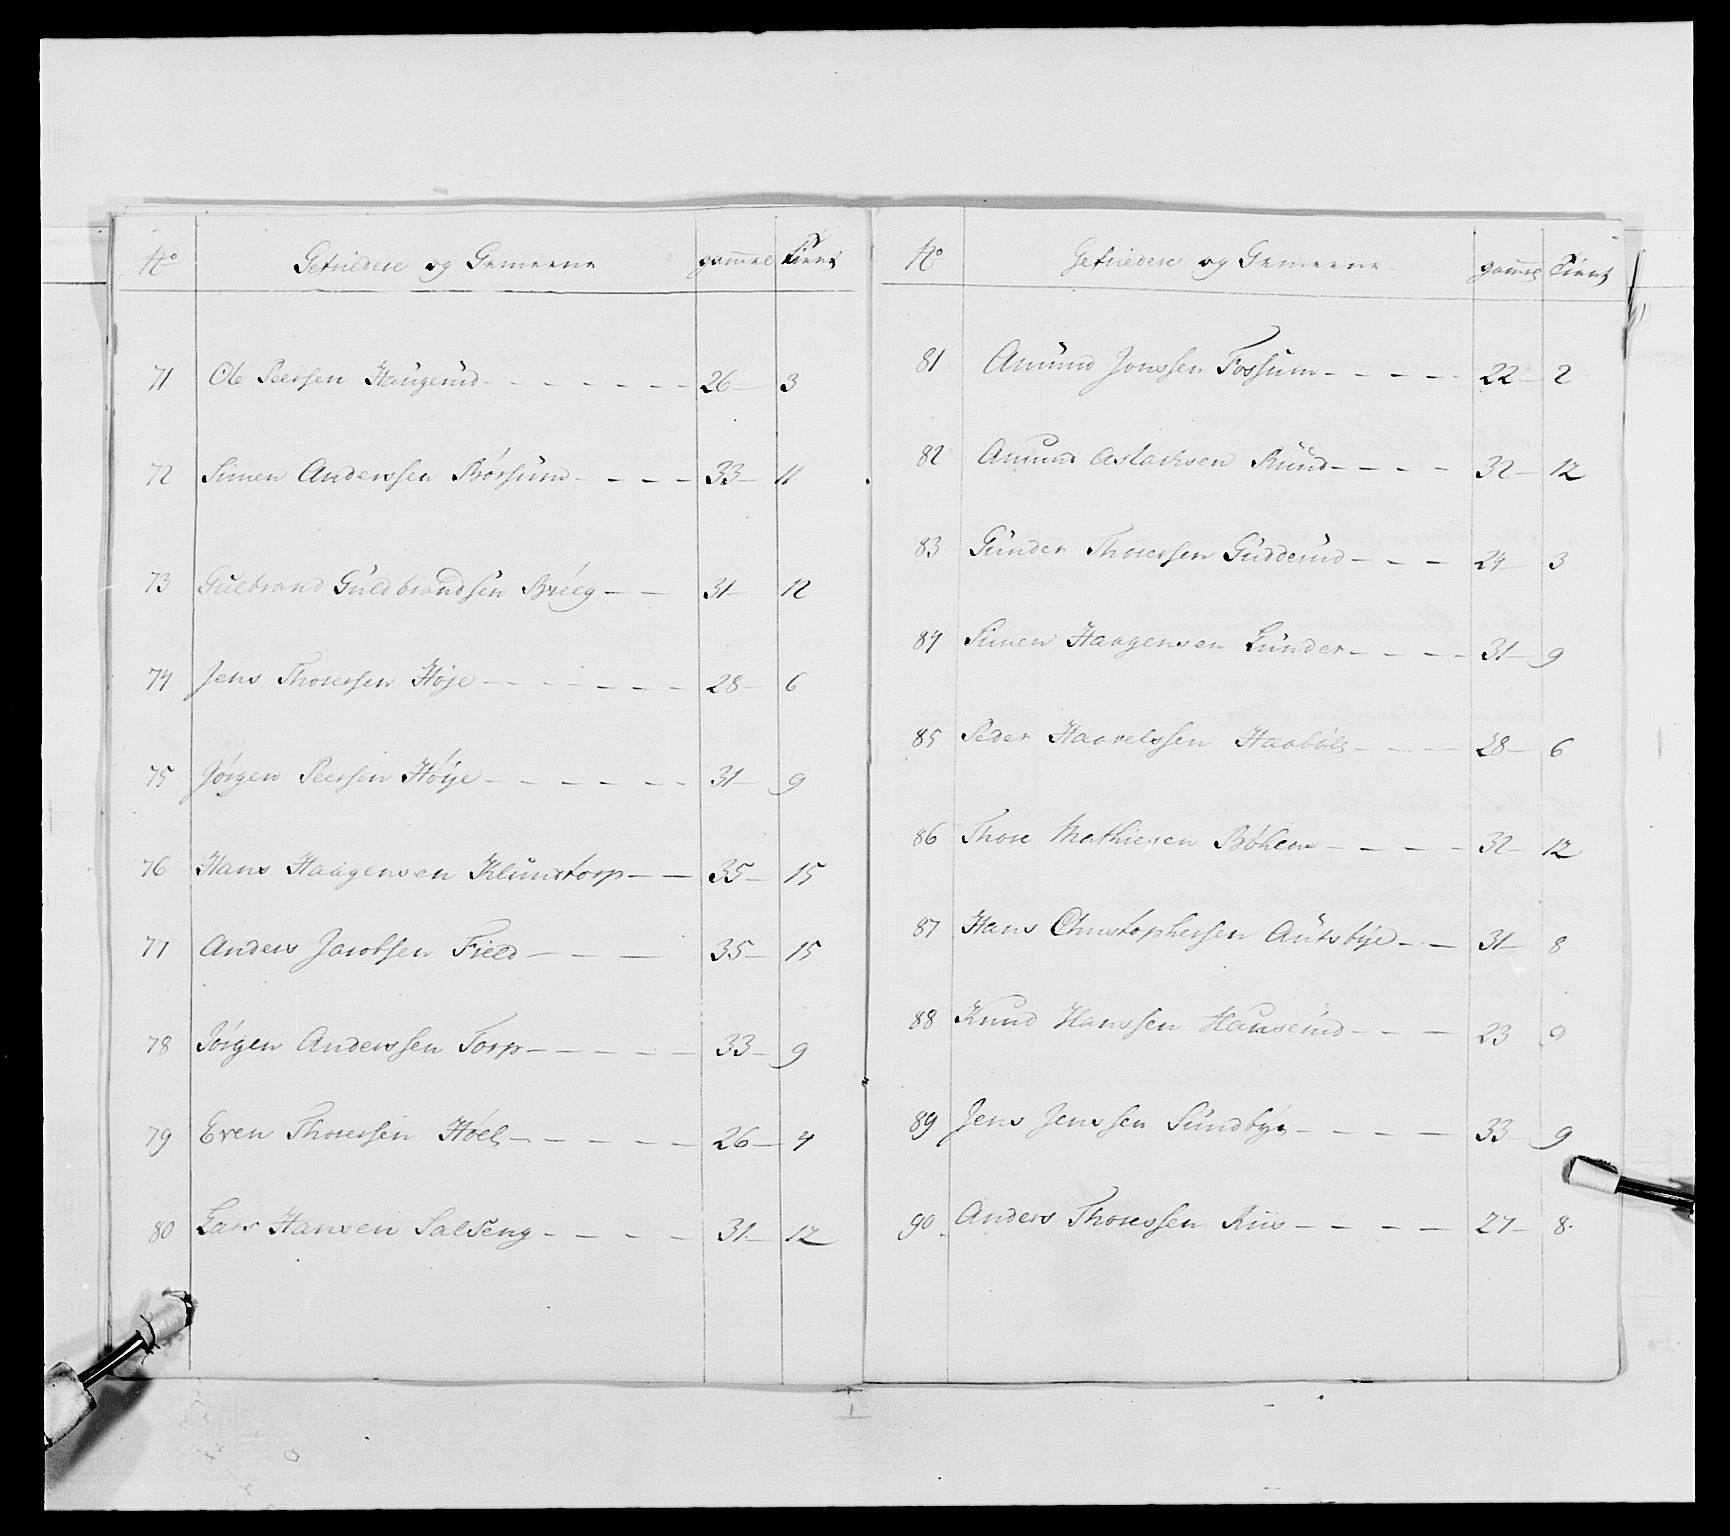 No Gefriedere og Gemeene gammel Tient
71 Ole Peersen Haugerud 26 3
72 Simen Anderssen Børsund 33 11
73 Gulbrand Guldbrandsen 31 12
74 Jens Thorersen Høje 28 6
75 Jørgen Peersen Høye 31 9
76 Hans Haagensen Klunstorp 35 15
77 Anders Jacobsen Field 35 15
78 Jørgen Anderssen Torp 33 9
79 Even Thorersen Hoel 26 4
80 Lars Hansen Salseng 31 12
No Gefriedere og Gemeene gammel Tient
81 Amund Jonssen Fossum 22 2
82 Amund Aslachsen Ruud 32 12
83 Gunder Thorersen Gudderud 24 3
84 Simen Haagensen Lunder 31 9
85 Peder Haavelssen Haabøl 28 6
86 Thore Mathiesen 32 12
87 Hans Christophersen 31 8
88 Knud Hanssen 23 9
89 Jens Jenssen Sundbye 33 9
90 Anders Thoressen Riis 27 8